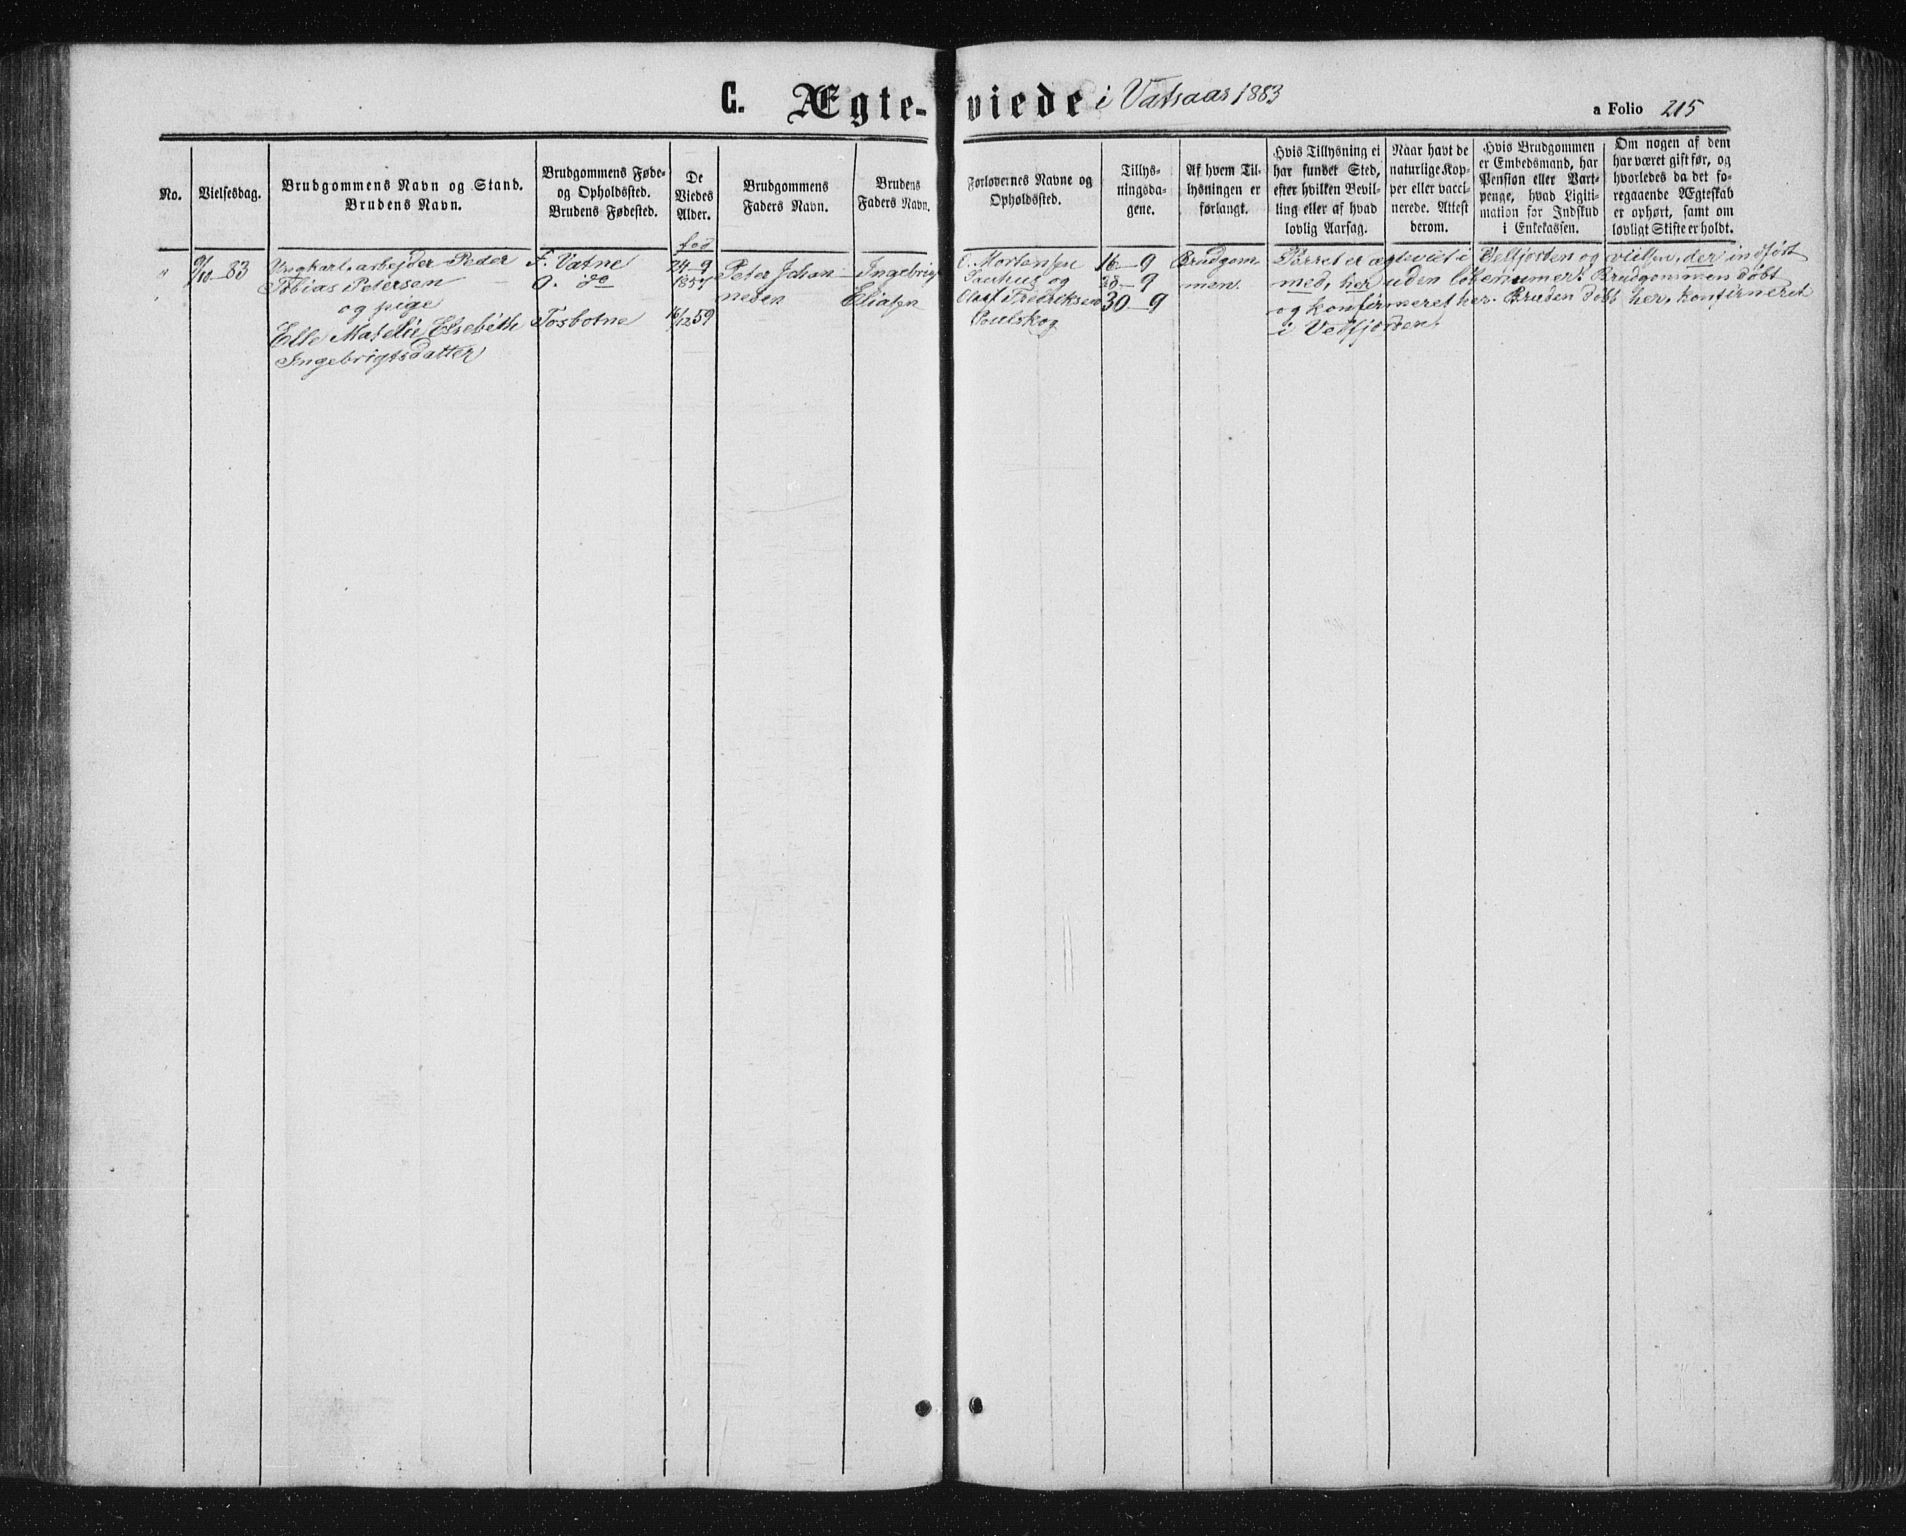 C. Ægte-viede i Vatsaas 1883
a Folio 215
No.
Vielsesdag.
Brudgommens Navn og Stand.
Brudens Navn.
Brudgommens Føde-
og Opholdssted.
Brudens Fødested.
De
Viedes
Alder.
Brudgommens
Faders Navn.
Brudens
Faders Navn.
Forlovernes Navne og
Opholdssted.
Tillys-
ningsda-
gene.
Af hvem Til-
lysningen er
forlangt.
Hvis Tillysning ei
har fundet Sted,
efter hvilken Bevil-
ling eller af hvad
lovlig Aarsag.
Naar havt de
naturlige Kop-
per eller vacci-
nerede. Attest
derom.
Hvis Brudgommen
er Embedsmand, har
Pension eller Vart-
penge, hvad Ligiti-
mation for Indskud
i Enkekassen.
Om nogen af dem
har været gift før, og
hvorledes da det fo-
regaaende Ægteskab
er ophørt, samt om
lovligt Skifte er holdt.
"
9/10 83
Ungkarl, arbejder Peder
Tobias Petersen
og pige
Elle Matelii Elsebeth
Ingebrigtsdatter
F. Vatne
O. do
Tosbotne
fød
24-9
1857
16/12 59
Peter Johan-
nesen
Ingebrigt
Eliassen
O. Mortensen
og
Olaf Fredriksen
Poulskog
16-9
23-9
30-9
Brudgom
men
Parret er ægteviet i Velfjorden og vielsen, der indført
med, her uden løbenumer. Brudgommen døbt
og konfirmeret her. Bruden døbt her, konfirmeret
i Velfjorden.